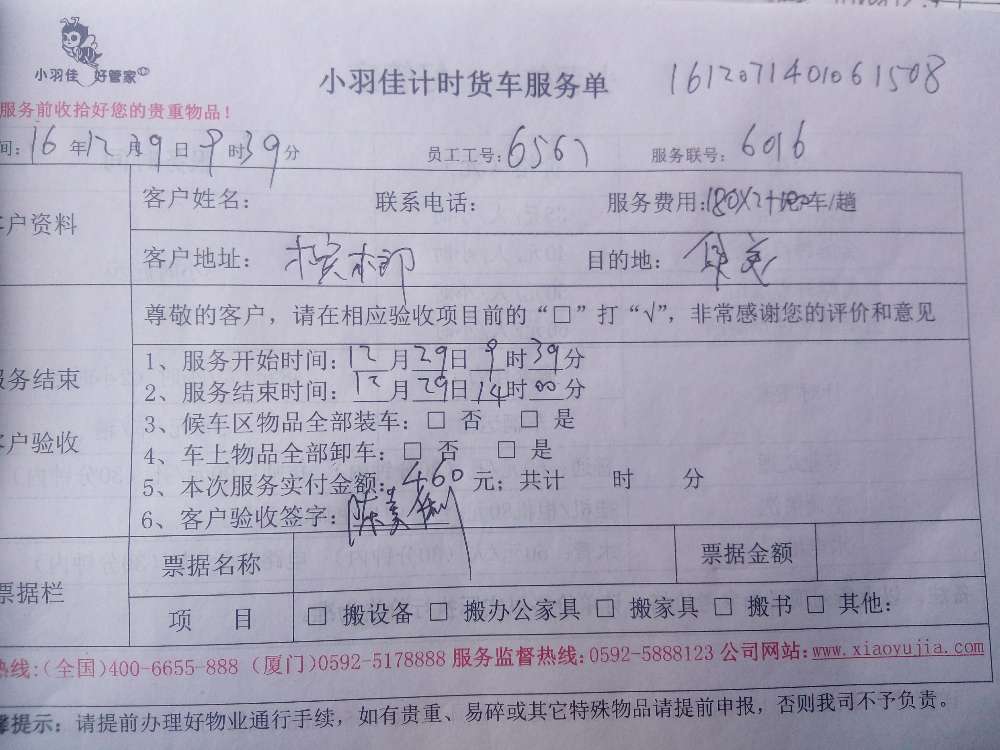 小羽佳 好管家
小羽佳计时货车服务单 1612071401061508
服务前收拾好您的贵重物品！
间：16年12月9日9时39分 员工工号：6567 服务联号：6016
客户资料 客户姓名： 联系电话： 服务费用：180X2+100车/趟
客户地址： 目的地：
尊敬的客户，请在相应验收项目前的“□”打“√”，非常感谢您的评价和意见
服务结束
客户验收
1、服务开始时间：12月29日9时39分
2、服务结束时间：12月29日14时00分
3、候车区物品全部装车：□ 否 □ 是
4、车上物品全部卸车：□ 否 □ 是
5、本次服务实付金额：460元；共计 时 分
6、客户验收签字：
票据栏 票据名称 票据金额
项 目 □ 搬设备 □ 搬办公家具 □ 搬家具 □ 搬书 □ 其他：
热线：(全国)400-6655-888 (厦门)0592-5178888 服务监督热线：0592-5888123 公司网站：www.xiaoyujia.com
馨提示：请提前办理好物业通行手续，如有贵重、易碎或其它特殊物品请提前申报，否则我司不予负责。